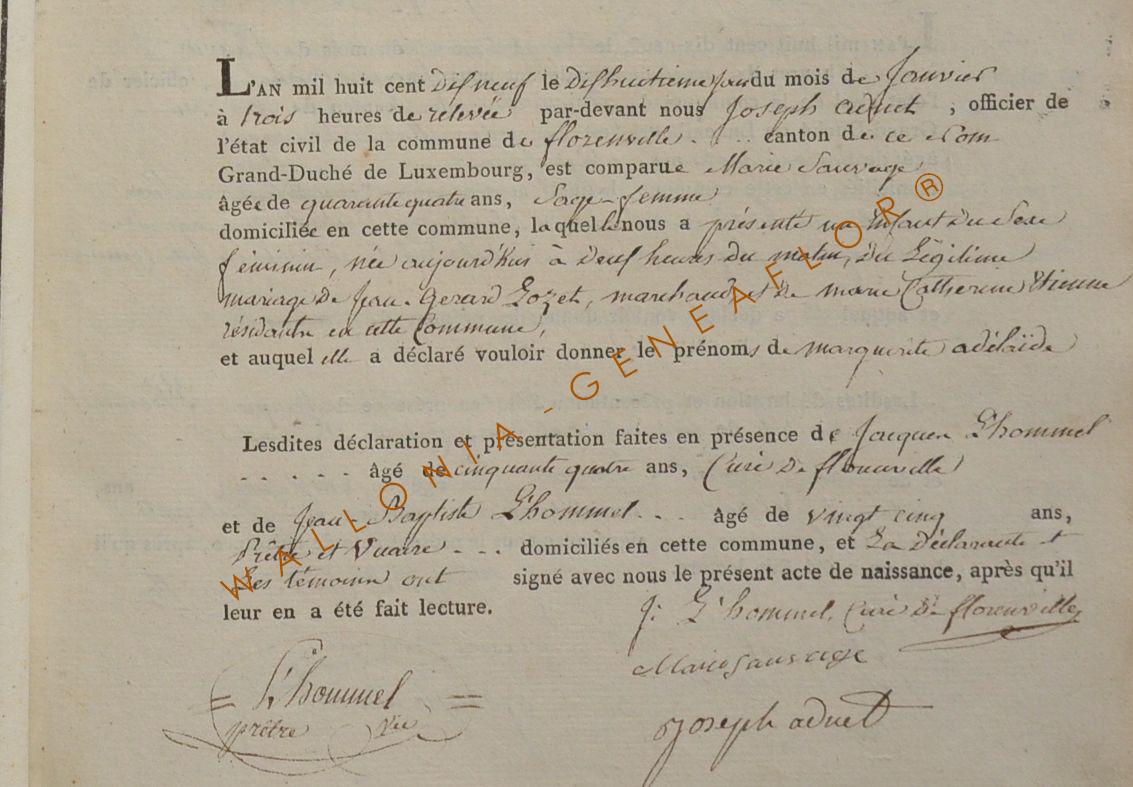 L'AN mil huit cent Disneuf le Dishuitieme jour du mois de Janvier
à trois heures de relevée par-devant nous Joseph adnet , officier de
l'état civil de la commune de florenville . . . canton de ce nom
Grand-Duché de Luxembourg, est comparue Marie Sauvage
âgée de quarante quatre ans, Sage-femme
domiciliée en cette commune, laquelle nous a présenté un Enfant Du Sexe
féminin, née aujourd'hui à neuf heures du matin, du Légitime
mariage de Jean-Gerard Gozet, marchand, et de marie Catherine Etienne
résidante en cette Commune,
et auquel elle a déclaré vouloir donner le prénoms de marguerite adélaïde
Lesdites déclaration et présentation faites en présence de Jacques L'hommel
. . . . âgé de cinquante quatre ans, Curé De florenville
et de Jean Baptiste L'hommel . . . âgé de vingt cinq ans,
Prêtre et Vicaire . . . domiciliés en cette commune, et La Déclarante et
Les témoins ont signé avec nous le présent acte de naissance, après qu'il
leur en a été fait lecture.
J. L'hommel, Curé De florenville
Marie Sauvage
L'hommel
prêtre vic
Joseph adnet
WALLONIA - GENEAFLOR®